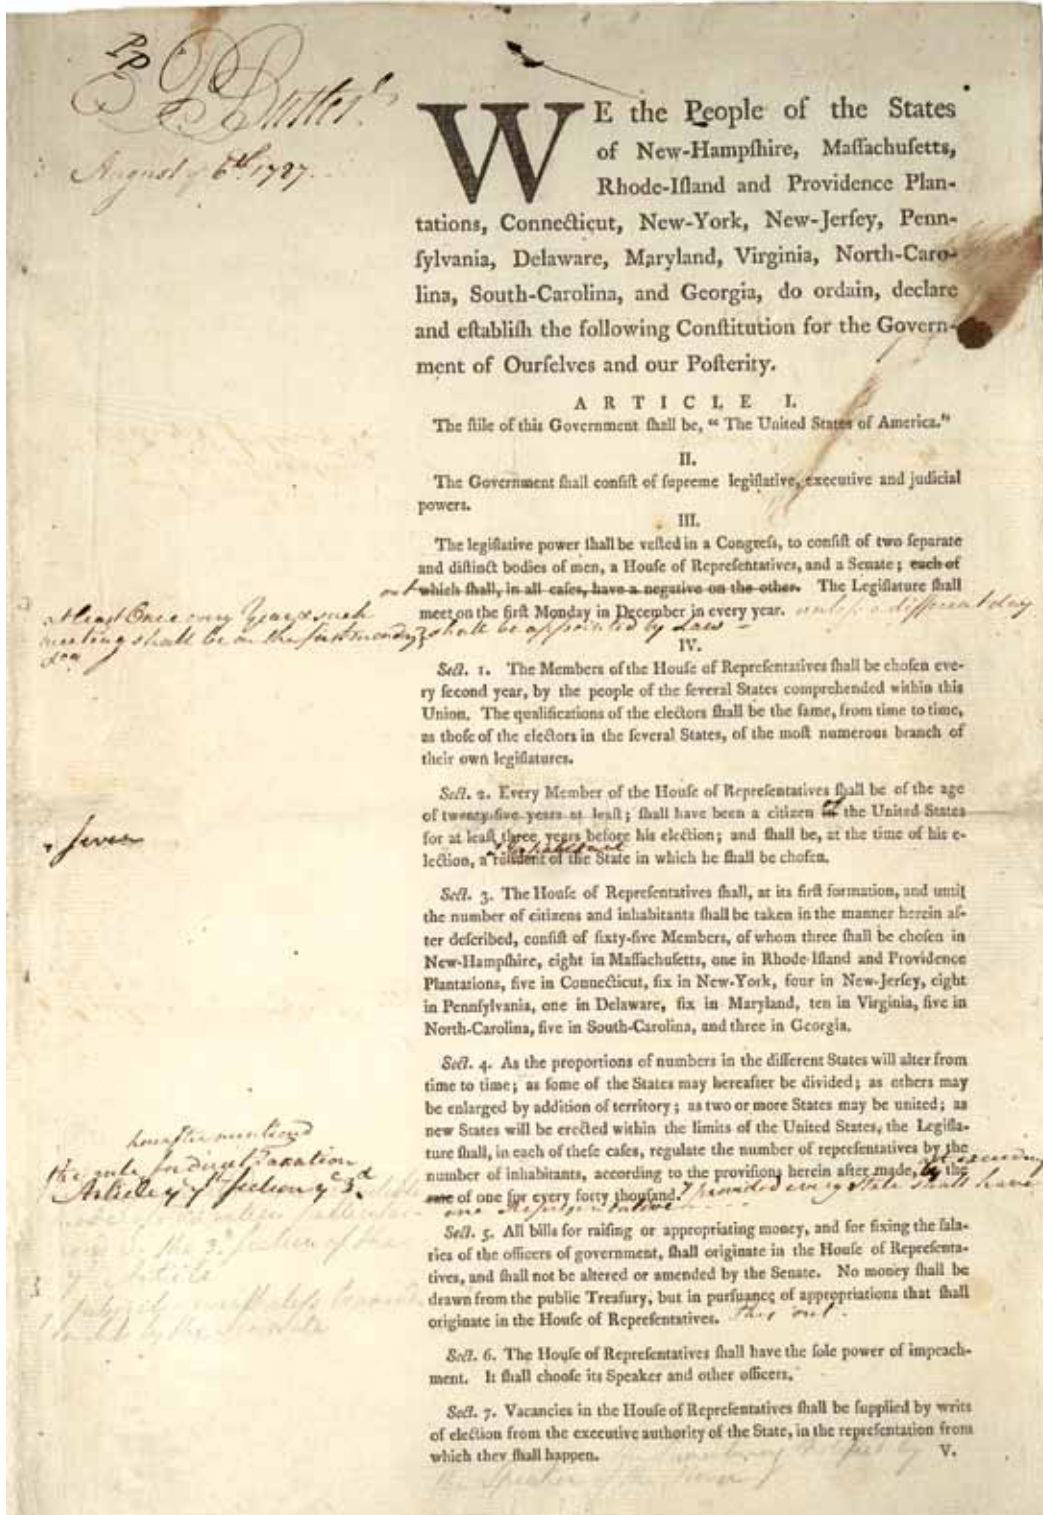 PP
P Butler's
August 6th 1787.
WE the People of the States
of New-Hampſhire, Maſſachuſetts,
Rhode-Iſland and Providence Plan-
tations, Connecticut, New-York, New-Jerſey, Penn-
ſylvania, Delaware, Maryland, Virginia, North-Caro-
lina, South-Carolina, and Georgia, do ordain, declare
and eſtabliſh the following Conſtitution for the Govern-
ment of Ourſelves and our Poſterity.
ARTICLE I.
The ſtile of this Government ſhall be, “ The United States of America.”
II.
The Government ſhall conſiſt of ſupreme legiſlative, executive and judicial
powers.
III.
The legiſlative power ſhall be veſted in a Congreſs, to conſiſt of two ſeparate
and diſtinct bodies of men, a Houſe of Repreſentatives, and a Senate ; each of
out which ſhall, in all caſes, have a negative on the other. The Legiſlature ſhall
meet on the firſt Monday in December in every year. unleſs a different day
shall be appointed by Law
at least Once every Year & such
meeting shall be on the first monday
IV.
Sect. 1. The Members of the Houſe of Repreſentatives ſhall be choſen eve-
ry ſecond year, by the people of the ſeveral States comprehended within this
Union. The qualifications of the electors ſhall be the ſame, from time to time,
as thoſe of the electors in the ſeveral States, of the moſt numerous branch of
their own legiſlatures.
Sect. 2. Every Member of the Houſe of Repreſentatives ſhall be of the age
of twenty-five years at leaſt ; ſhall have been a citizen of the United States
for at leaſt three years before his election ; and ſhall be, at the time of his e-
Inhabitant
lection, a reſident of the State in which he ſhall be choſen.
ſeven
Sect. 3. The Houſe of Repreſentatives ſhall, at its firſt formation, and until
the number of citizens and inhabitants ſhall be taken in the manner herein af-
ter deſcribed, conſiſt of ſixty-five Members, of whom three ſhall be choſen in
New-Hampſhire, eight in Maſſachuſetts, one in Rhode-Iſland and Providence
Plantations, five in Connecticut, ſix in New-York, four in New-Jerſey, eight
in Pennſylvania, one in Delaware, ſix in Maryland, ten in Virginia, five in
North-Carolina, five in South-Carolina, and three in Georgia.
Sect. 4. As the proportions of numbers in the different States will alter from
time to time ; as ſome of the States may hereafter be divided ; as others may
be enlarged by addition of territory ; as two or more States may be united ; as
new States will be erected within the limits of the United States, the Legiſla-
ture ſhall, in each of theſe caſes, regulate the number of repreſentatives by the
number of inhabitants, according to the proviſions herein after made, the
rate of one for every forty thouſand. provided every State shall have
one Representative
hereafter mentioned
the rule for direct Taxation
Article 7 section 3d
Sect. 5. All bills for raiſing or appropriating money, and for fixing the ſala-
ries of the officers of government, ſhall originate in the Houſe of Repreſenta-
tives, and ſhall not be altered or amended by the Senate. No money ſhall be
drawn from the public Treaſury, but in purſuance of appropriations that ſhall
originate in the Houſe of Repreſentatives. this out
Sect. 6. The Houſe of Repreſentatives ſhall have the ſole power of impeach-
ment. It ſhall chooſe its Speaker and other officers.
Sect. 7. Vacancies in the Houſe of Repreſentatives ſhall be ſupplied by writs
of election from the executive authority of the State, in the repreſentation from
which they ſhall happen.
V.